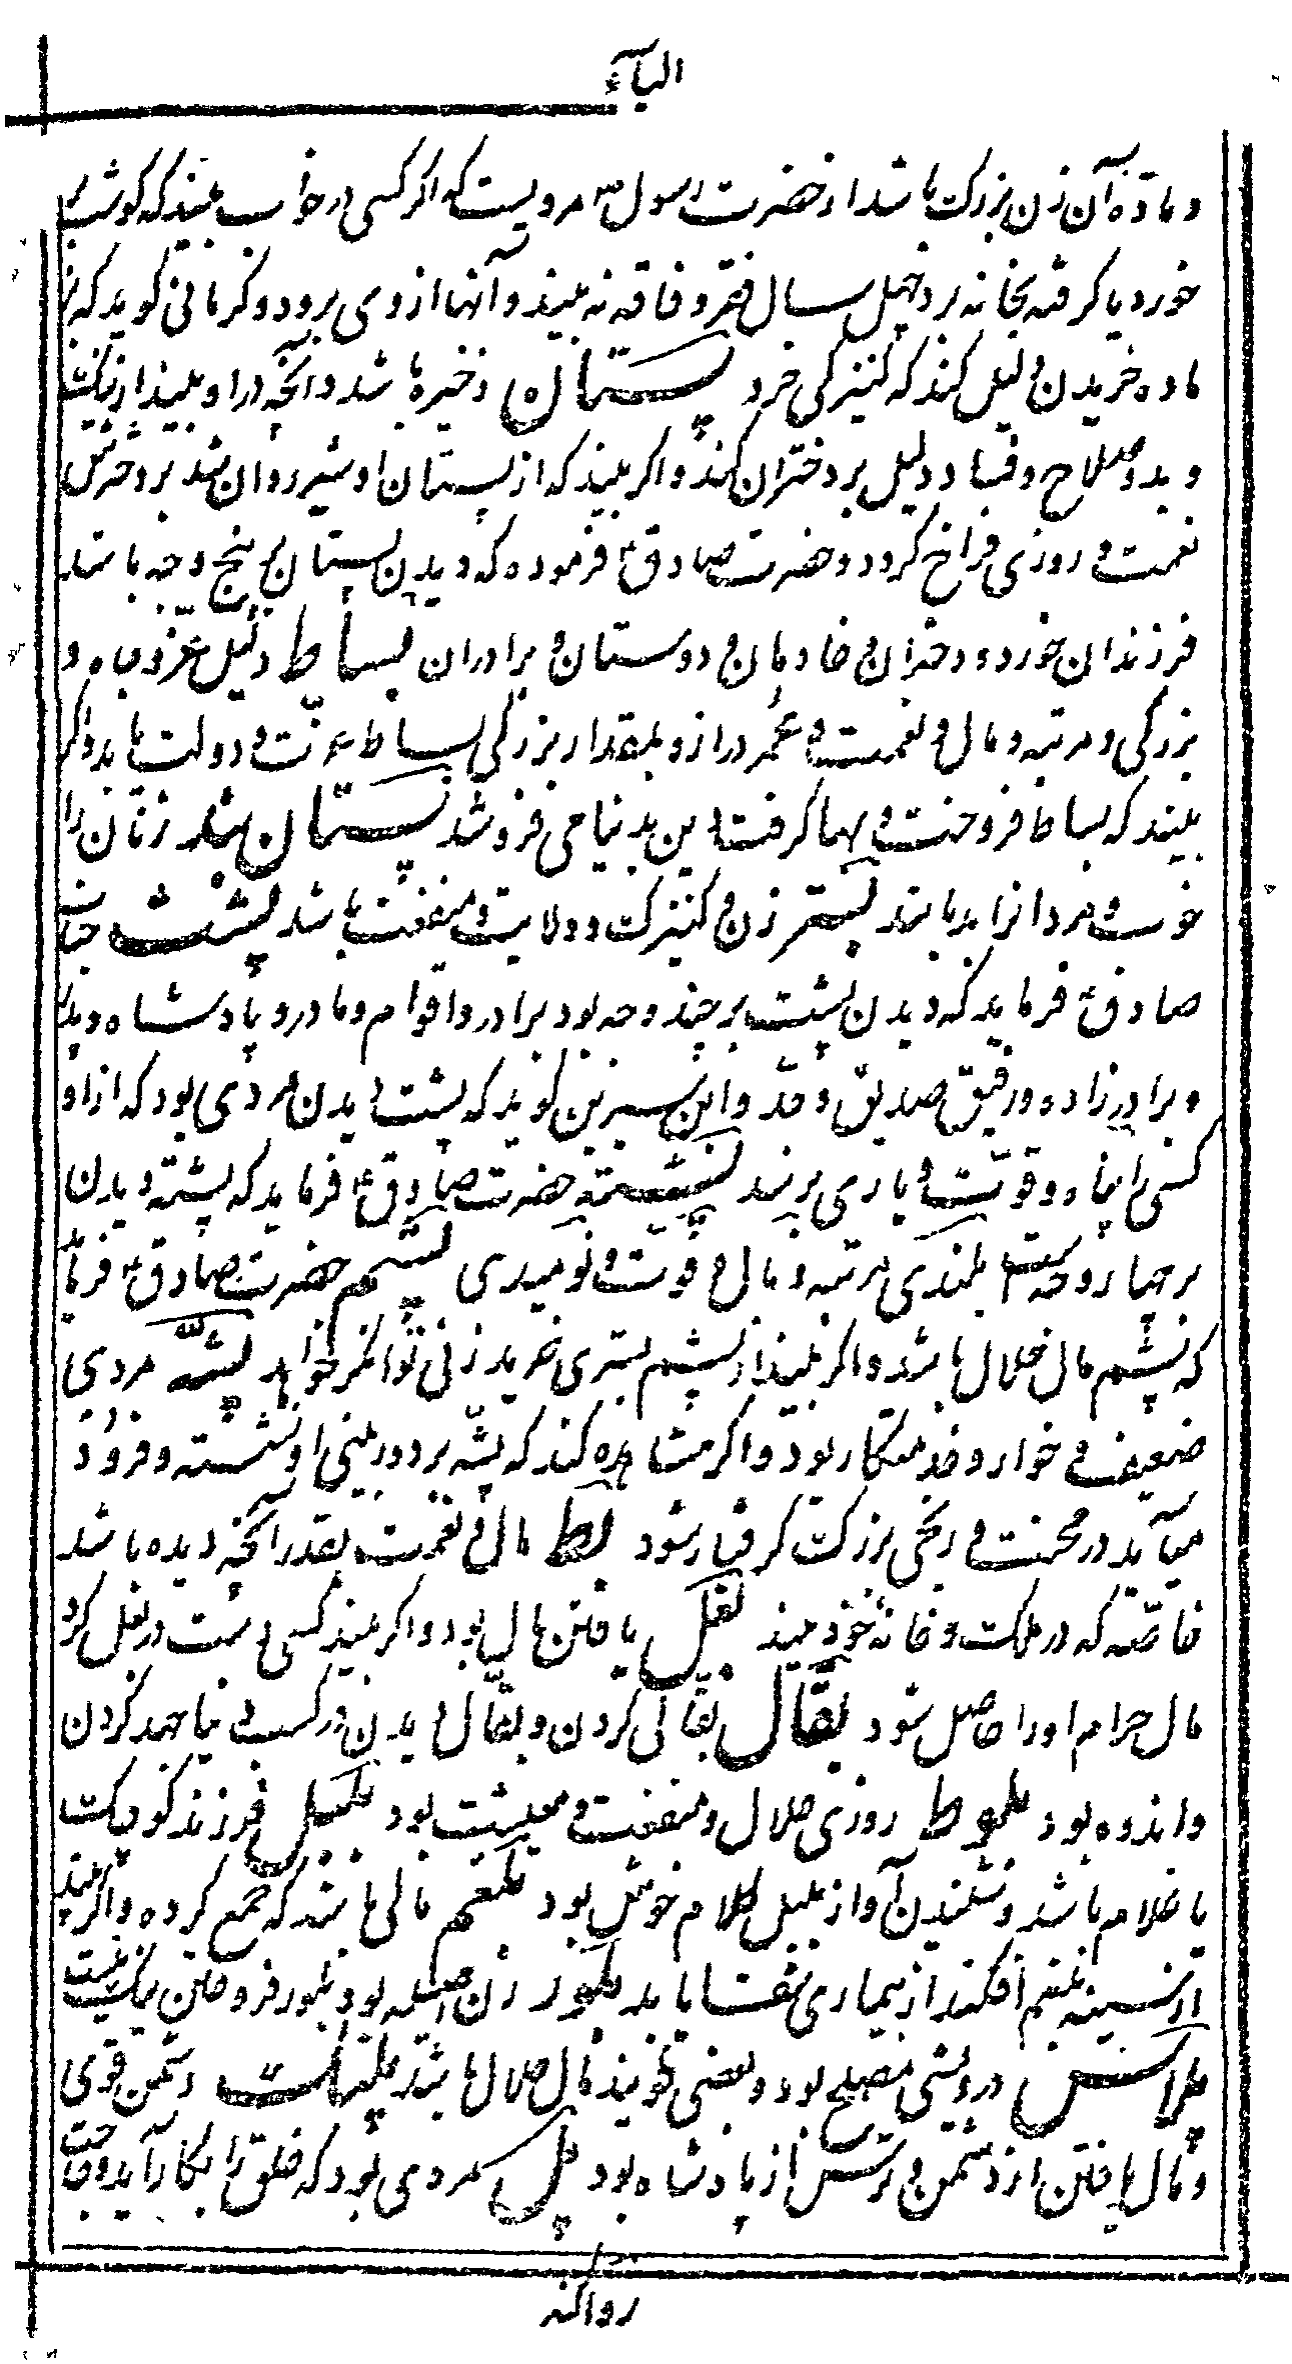 البآء
و مادّه آن زن بزرک باشد از حضرت رسول ص مرویست که اکر کسی در خواب بیند که کوشت
خورد یا کرفته بخانه برد چهل سال فقر و فاقه نه بیند و آنها از وی برود و کرمانی کوید که بز
ماده خریدن دلیل کند که کنیزکی خرد پستان ذخیره باشد و آنچه در او بیند از نیک
و بد و صلاح و فساد دلیل بر دختران کند و اکر بیند که از پستان او شیر روان شد بر دخترش
نعمت و روزی فراخ کردد و حضرت صادق ع فرموده که دیدن پستان بر پنج وجه باشد
فرزندان خورد و دختران و خادمان و دوستان و برادران بساط دلیل عزّ و جاه و
بزرکی و مرتبه و مال و نعمت و عمر دراز و بمقدار بزرکی بساط عزّت و دولت یابد و اکر
بیند که بساط فروخت و بها کرفت دین بدنیا می فروشد پستان بند زنان را
خوب و مردانرا بد باشد بستر زن و کنیزک و ولایت و منفعت باشد پشت جناب
صادق ع فرماید که دیدن پشت بر چند وجه بود برادر و اقوام و مادر و پادشاه و پدر
و برادرزاده و رفیق صدیق و جدّ و ابن سیرین کوید که پشت دیدن مردی بود که از او
کسی را پناه و قوّت و یاری برند پشته حضرت صادق ع فرماید که پشته دیدن
بر چهار وجه است بلندی مرتبه و مال و قوت و نومیدی پشم حضرت صادق ع فرماید
که پشم مال حلال باشد و اکر بیند از پشم بستری خرید زنی توانکر خواهد پشّه مردی
ضعیف و خوار و خدمتکار بود و اکر مشاهده کند که پشّه بر دور بینی او نشسته و فرود
میآید در محنت و رنجی بزرک کرفتار شود بط مال و نعمت بقدر آنچه دیده باشد
خاصّه که در ملک و خانه خود بیند بغل یافتن مال بود و اکر بیند کسی دست در بغل کرد
مال حرام او را حاصل شود بقّال بقالی کردن و بقّال دیدن در کسب دنیا جهد کردن
و اندوه بود بلوط روزی حلال و منفعت و معیشت بود بلبل فرزند کوچک
یا غلام باشد و شنیدن آواز بلبل کلام خوش بود بلغم مالی باشد که جمع کرده و اکر بیند
از سینه بلغم افکند از بیماری شفا یابد بلور زن اصیله بود بلور فروختن نیک نیست
پلاس درویشی مصلح بود و بعضی کویند مال حلال باشد پلنک دشمن قوی
و مال یافتن از دشمن و ترس از پادشاه بود پل مردی بود که خلق را بکار آید و حاجت
روا کند